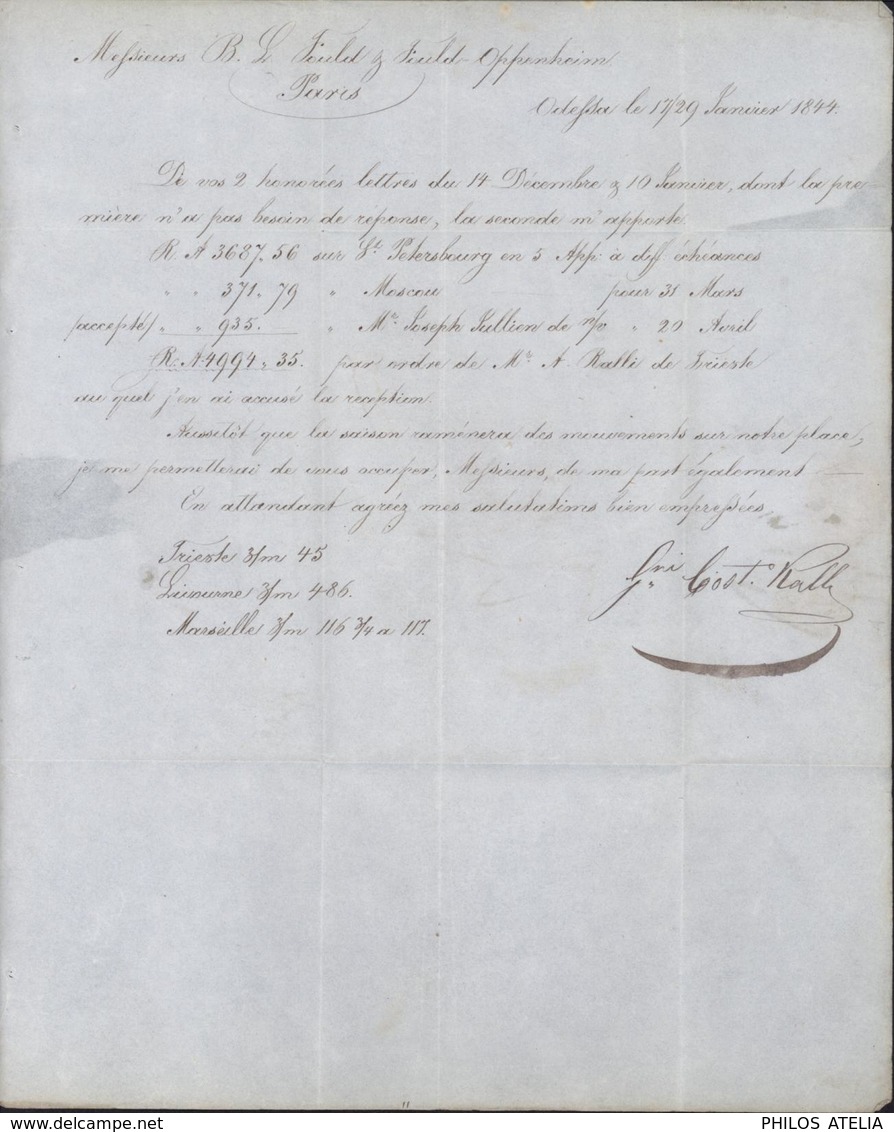 Messieurs B. L. Fould & Fould-Oppenheim
Paris
Odessa le 17/29 Janvier 1844.
De vos 2 honorées lettres du 14 Décembre & 10 Janvier, dont la pre
mière n'a pas besoin de réponse, la seconde m'apporte
R A 3687. 56 sur St. Petersbourg en 5 App: à diff. échéances
" " 371. 79 " Moscou pour 31 Mars
accepté/ " " 935. " Mr. Joseph Jullien de n/v " 20 Avril
R. A 4994. 35. par ordre de Mr. A. Ralli de Trieste
au quel j'en ai accusé la reception.
Aussitôt que la saison raménera des mouvements sur notre place,
je me permetterai de vous occuper, Messieurs, de ma part également
En attandant agréez mes salutations bien empressées
Trieste 3/m 45
Livourne 3/m 486.
Marseille 3/m 116 3/4 a 117.
Gni Cost. Ralli
PHILOS ATELIA
www.delcampe.net